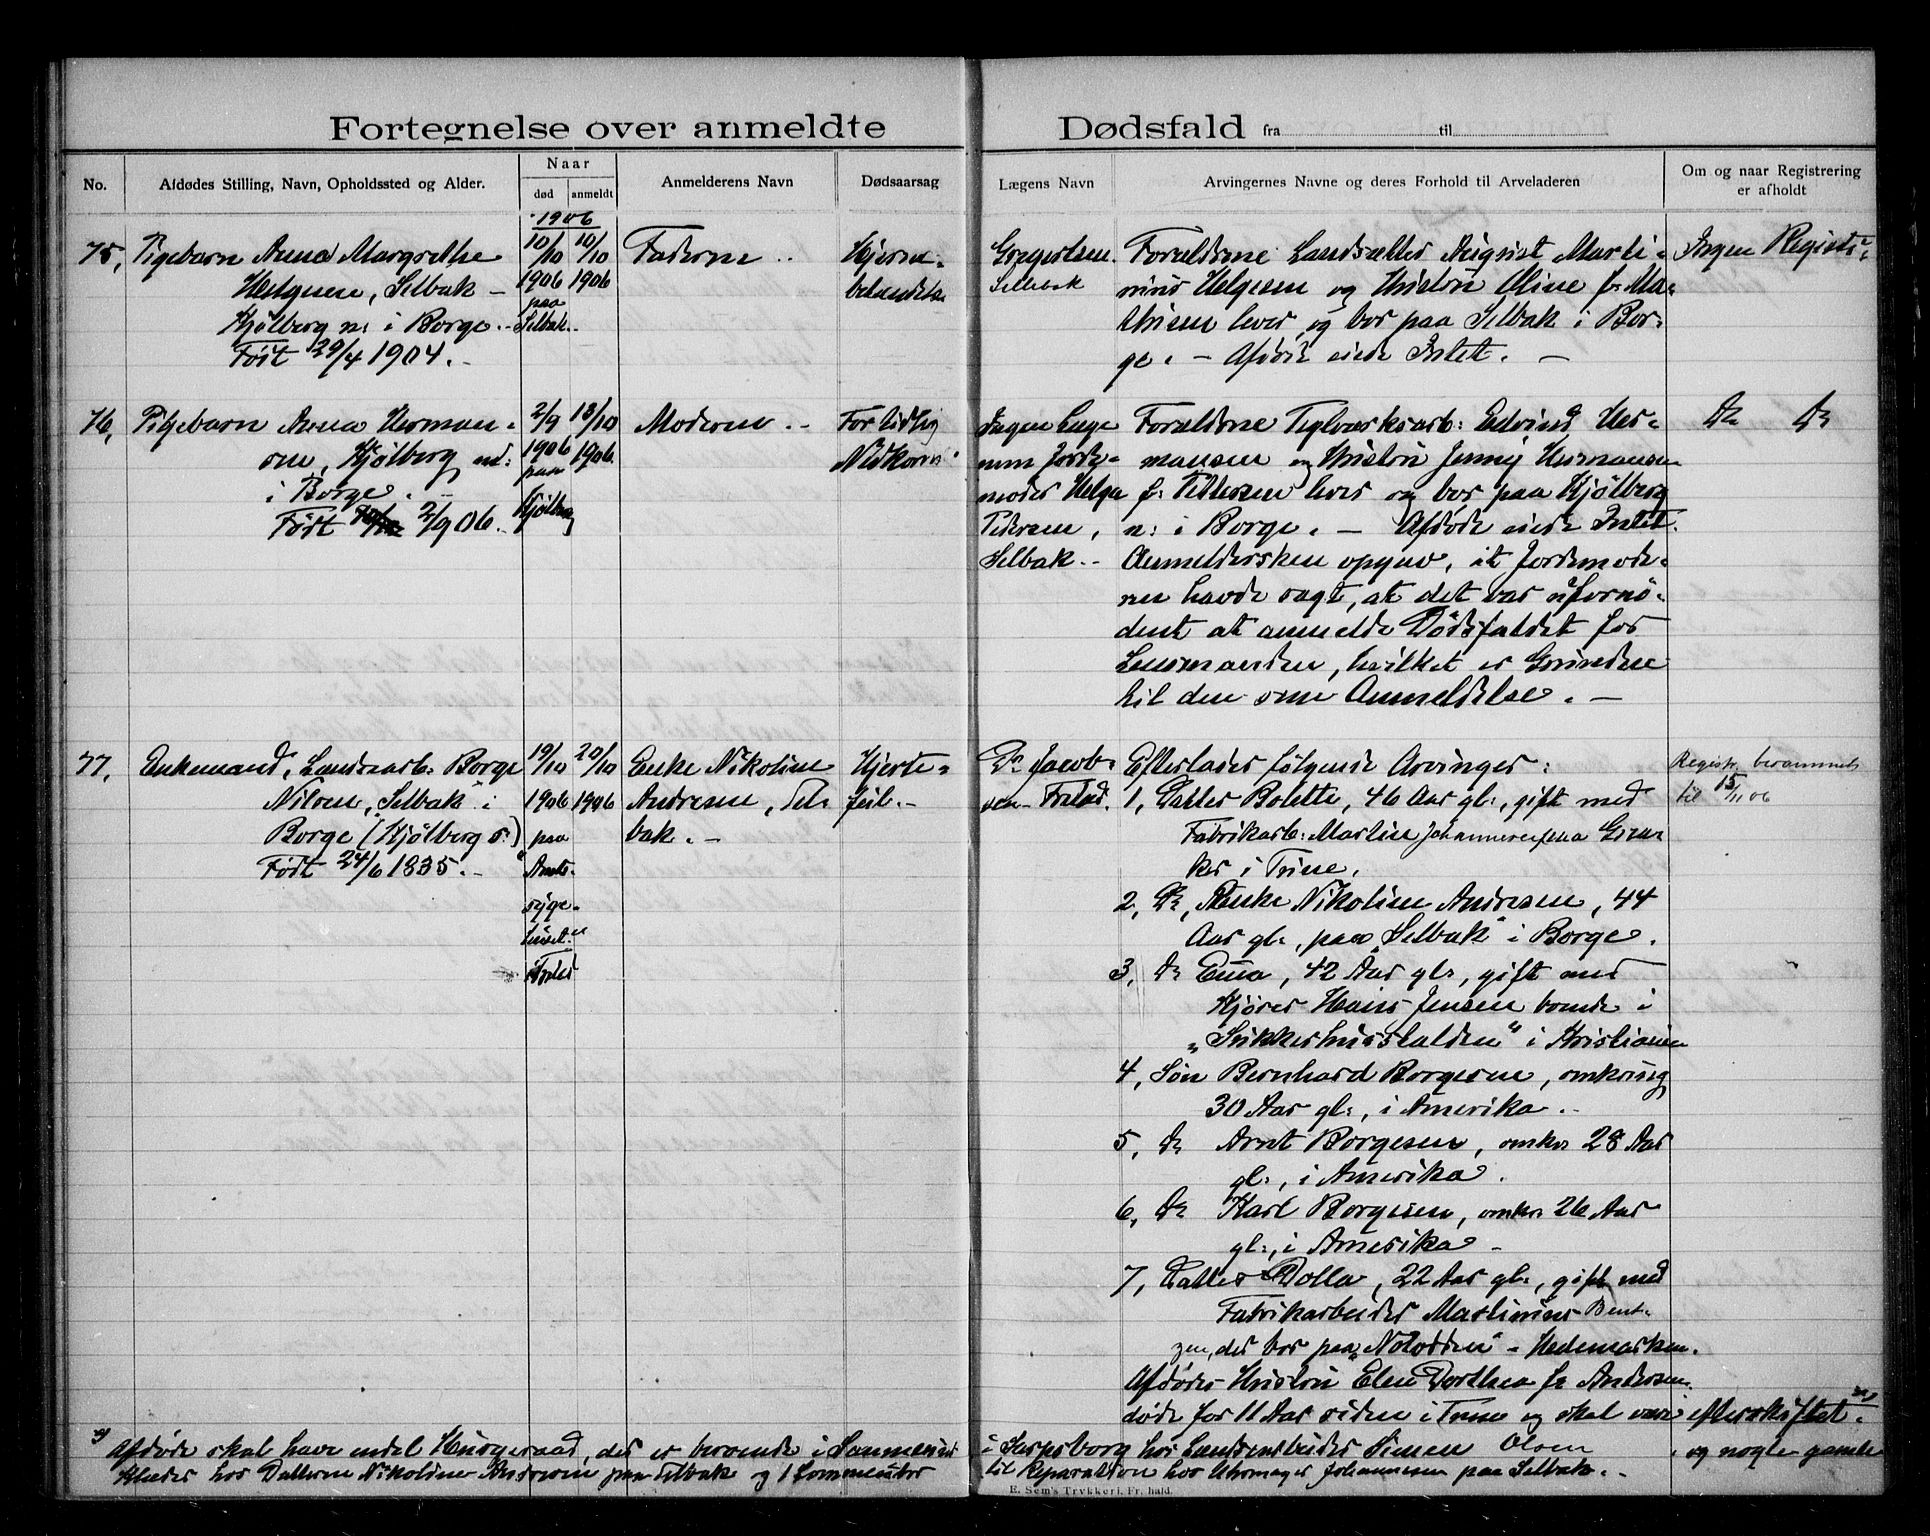 Fortegnelse over anmeldte Dødsfald fra til
No.
Afdødes Stilling, Navn, Opholdssted og Alder.
Naar
død anmeldt
Anmelderens Navn
Dødsaarsag
Lægens Navn
Arvingernes Navne og deres Forhold til Arveladeren
Om og naar Registrering
er afholdt
1906
75,
Pigebarn Anna Margrethe
Helgesen, Selbak –
Kjølberg n: i Borge. –
Født 29/4 1904. –
10/10 10/10
1906 1906
paa
Selbak. –
Faderen. –
Hjerne-
betændelse
Gregertsen
Sellebak
Forældrene Landsætter August Marti-
nius Helgesen og Hustru Oline f. Ma-
thisen lever og bor paa Selbak i Bor-
ge. – Afdøde eiede Intet. –
Ingen Registr:
76,
Pigebarn Anna Herman-
sen, Kjølberg nd:
i Borge. –
Født 2/9 06. –
2/9 13/10
1906 1906
paa
Kjølberg
Moderen. –
For tidlig
Nedkomst
Ingen Læge
men Jorde-
moder Helga
Pedersen,
Selbak. –
Forældrene Teglværksarb: Edvind Her-
mansen og Hustru Jenny Hermansen
f. Pettersen lever og bor paa Kjølberg
n: i Borge. – Afdøde eiede Intet.
Anmeldersken opgav, at Jordemode-
ren havde sagt, at det var ufornø-
dent at anmelde Dødsfaldet for
Lensmanden, hvilket er Grunden
til den sene Anmeldelse. –
Do Do
77,
Enkemand, Landsarb: Borge
Nilsen, "Selbak" i
Borge (Kjølberg s:)
Født 24/6 1835. –
19/10 20/10
1906 1906
paa
"Amts-
syge-
huset"
i Fr.stad
Enke Nikoline
Andresen, Sel-
bak. –
Hjerte-
feil. –
Dr Jacob-
sen Fr.stad.
Efterlader følgende Arvinger:
1, Datter Bolette, 46 Aar gl:, gift med
Fabrikarb: Martin Johannesen paa Græa-
ker i Tune.
2, Do, Enke Nikoline Andresen, 44
Aar gl:, paa "Selbak" i Borge.
3, Do Emma, 42 Aar gl:, gift med
Kjører Hans Jensen boende i
"Sukkerhusstalden" i Kristiania
4, Søn Bernhard Borgesen, omkring
30 Aar gl:, i Amerika. –
5, Do Arnt Borgesen, omkr. 28 Aar
gl:, i Amerika.
6, Do Karl Borgesen, omkr. 26 Aar
gl:, i Amerika –
7, Datter Dolla, 22 Aar gl:, gift med
Fabrikarbeider Martinius Bent-
zen, der bor paa "Notodden" – Hedemarken.
Afdødes Hustru Elen Dorthea f. Andersen
døde for 11 Aar siden i Tune og skal være efterskiftet. x)
Registr. berammet
til 15/11 06
x) Afdøde skal have endel Husgeraad, der er beroende i Sammerud i Sarpsborg hos Landarbeider Simen Olsen og nogle gamle
Klæder hos Datteren Nikoline Andresen paa Selbak og 1 Lommeuhr til Reparation hos Uhrmager Johannesen paa Selbak. –
E. Sem's Trykkeri, Fr. hald.